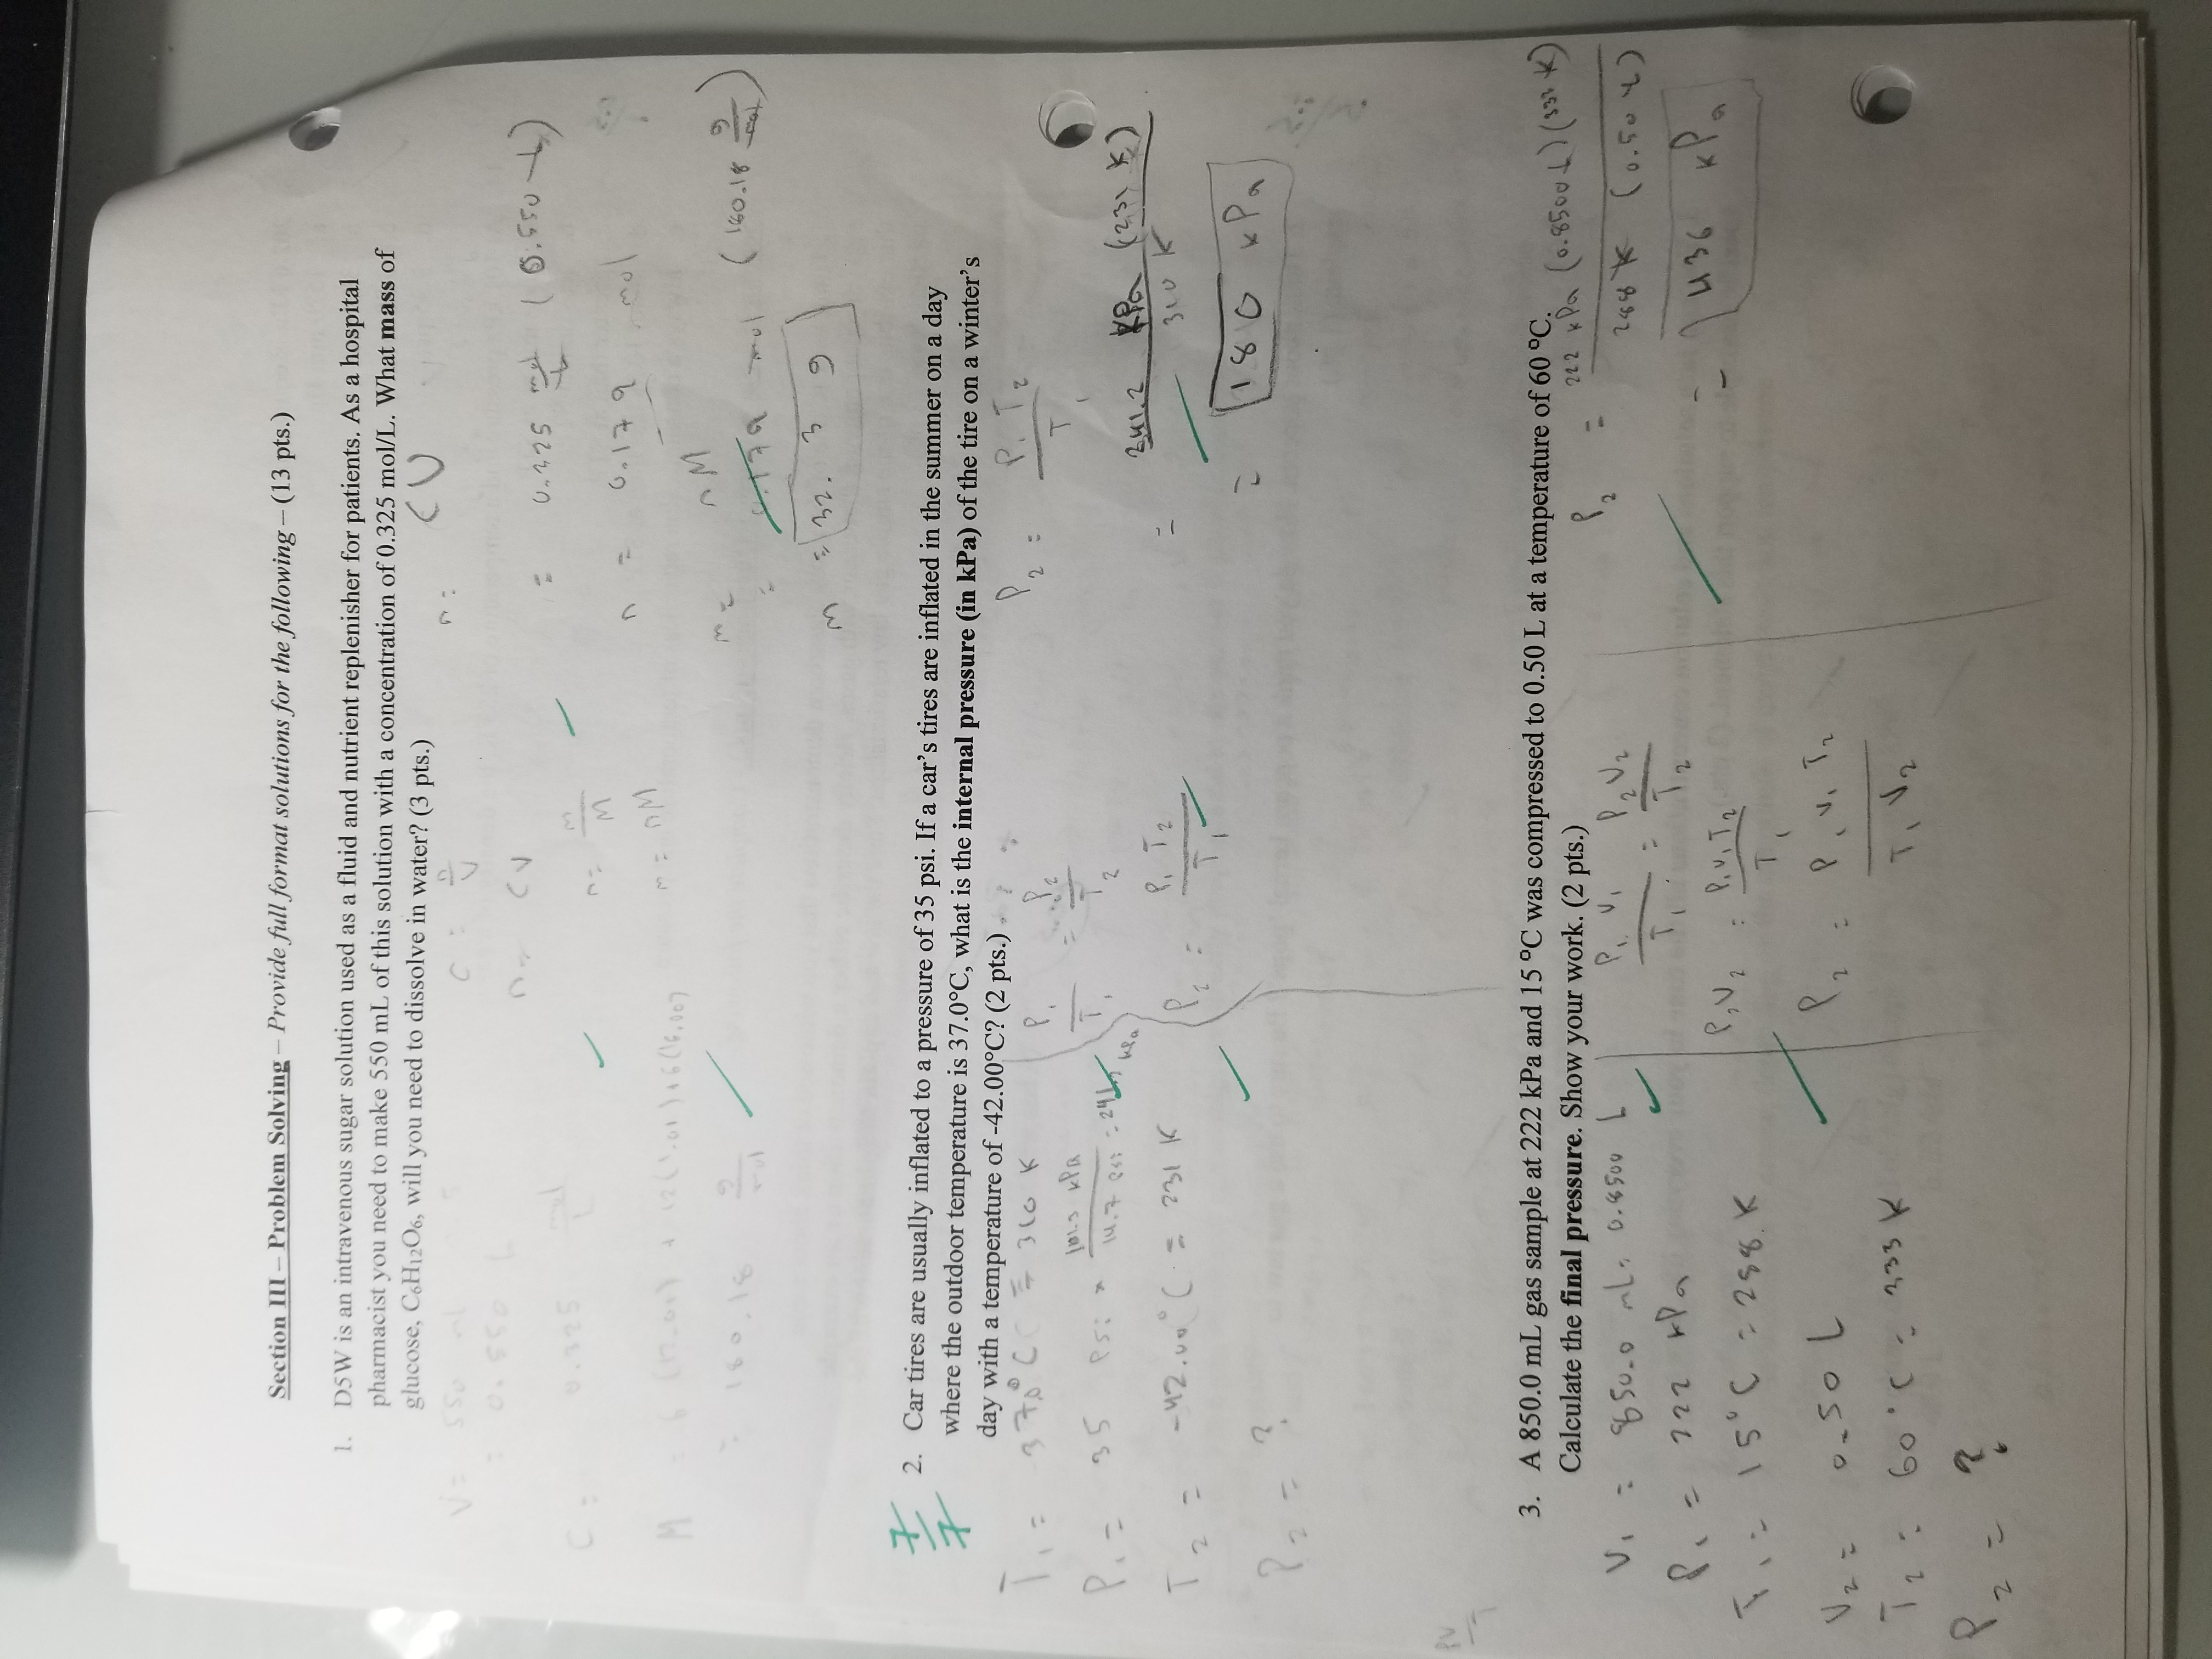 Section III – Problem Solving – Provide full format solutions for the following – (13 pts.)
1. D5W is an intravenous sugar solution used as a fluid and nutrient replenisher for patients. As a hospital
pharmacist you need to make 550 mL of this solution with a concentration of 0.325 mol/L. What mass of
glucose, C6H12O6, will you need to dissolve in water? (3 pts.)
V = 550 ml
= 0.550 L
C = 0.325 mol/L
M = 6 (12.01) + 12(1.01)+6(16.00)
= 180.18 g/mol
C = n/V
n = CV
n = m/M
m = nM
n = CV
= 0.325 mol/L (0.550 L)
n = 0.179 mol
m = nM
= 0.179 mol (180.18 g/mol)
m = 32.3 g
7/7
2. Car tires are usually inflated to a pressure of 35 psi. If a car's tires are inflated in the summer on a day
where the outdoor temperature is 37.0°C, what is the internal pressure (in kPa) of the tire on a winter's
day with a temperature of -42.00°C? (2 pts.)
T1 = 37.0°C = 310 K
P1 = 35 psi × 101.3 kPa/14.7 psi = 241.2 kPa
T2 = -42.00°C = 231 K
P2 = ?
P1/T1 = P2/T2
P2 = P1 T2/T1
P2 = P1 T2/T1
= 241.2 kPa (231 K)/310 K
= 180 kPa
PV/T
3. A 850.0 mL gas sample at 222 kPa and 15 °C was compressed to 0.50 L at a temperature of 60 °C.
Calculate the final pressure. Show your work. (2 pts.)
V1 = 850.0 mL = 0.8500 L
P1 = 222 kPa
T1 = 15°C = 288 K
V2 = 0.50 L
T2 = 60°C = 333 K
P2 = ?
P1 V1/T1 = P2 V2/T2
P2V2 = P1V1T2/T1
P2 = P1 V1 T2/T1 V2
P2 = 222 kPa (0.8500 L)(333 K)/288 K (0.50 L)
= 436 kPa